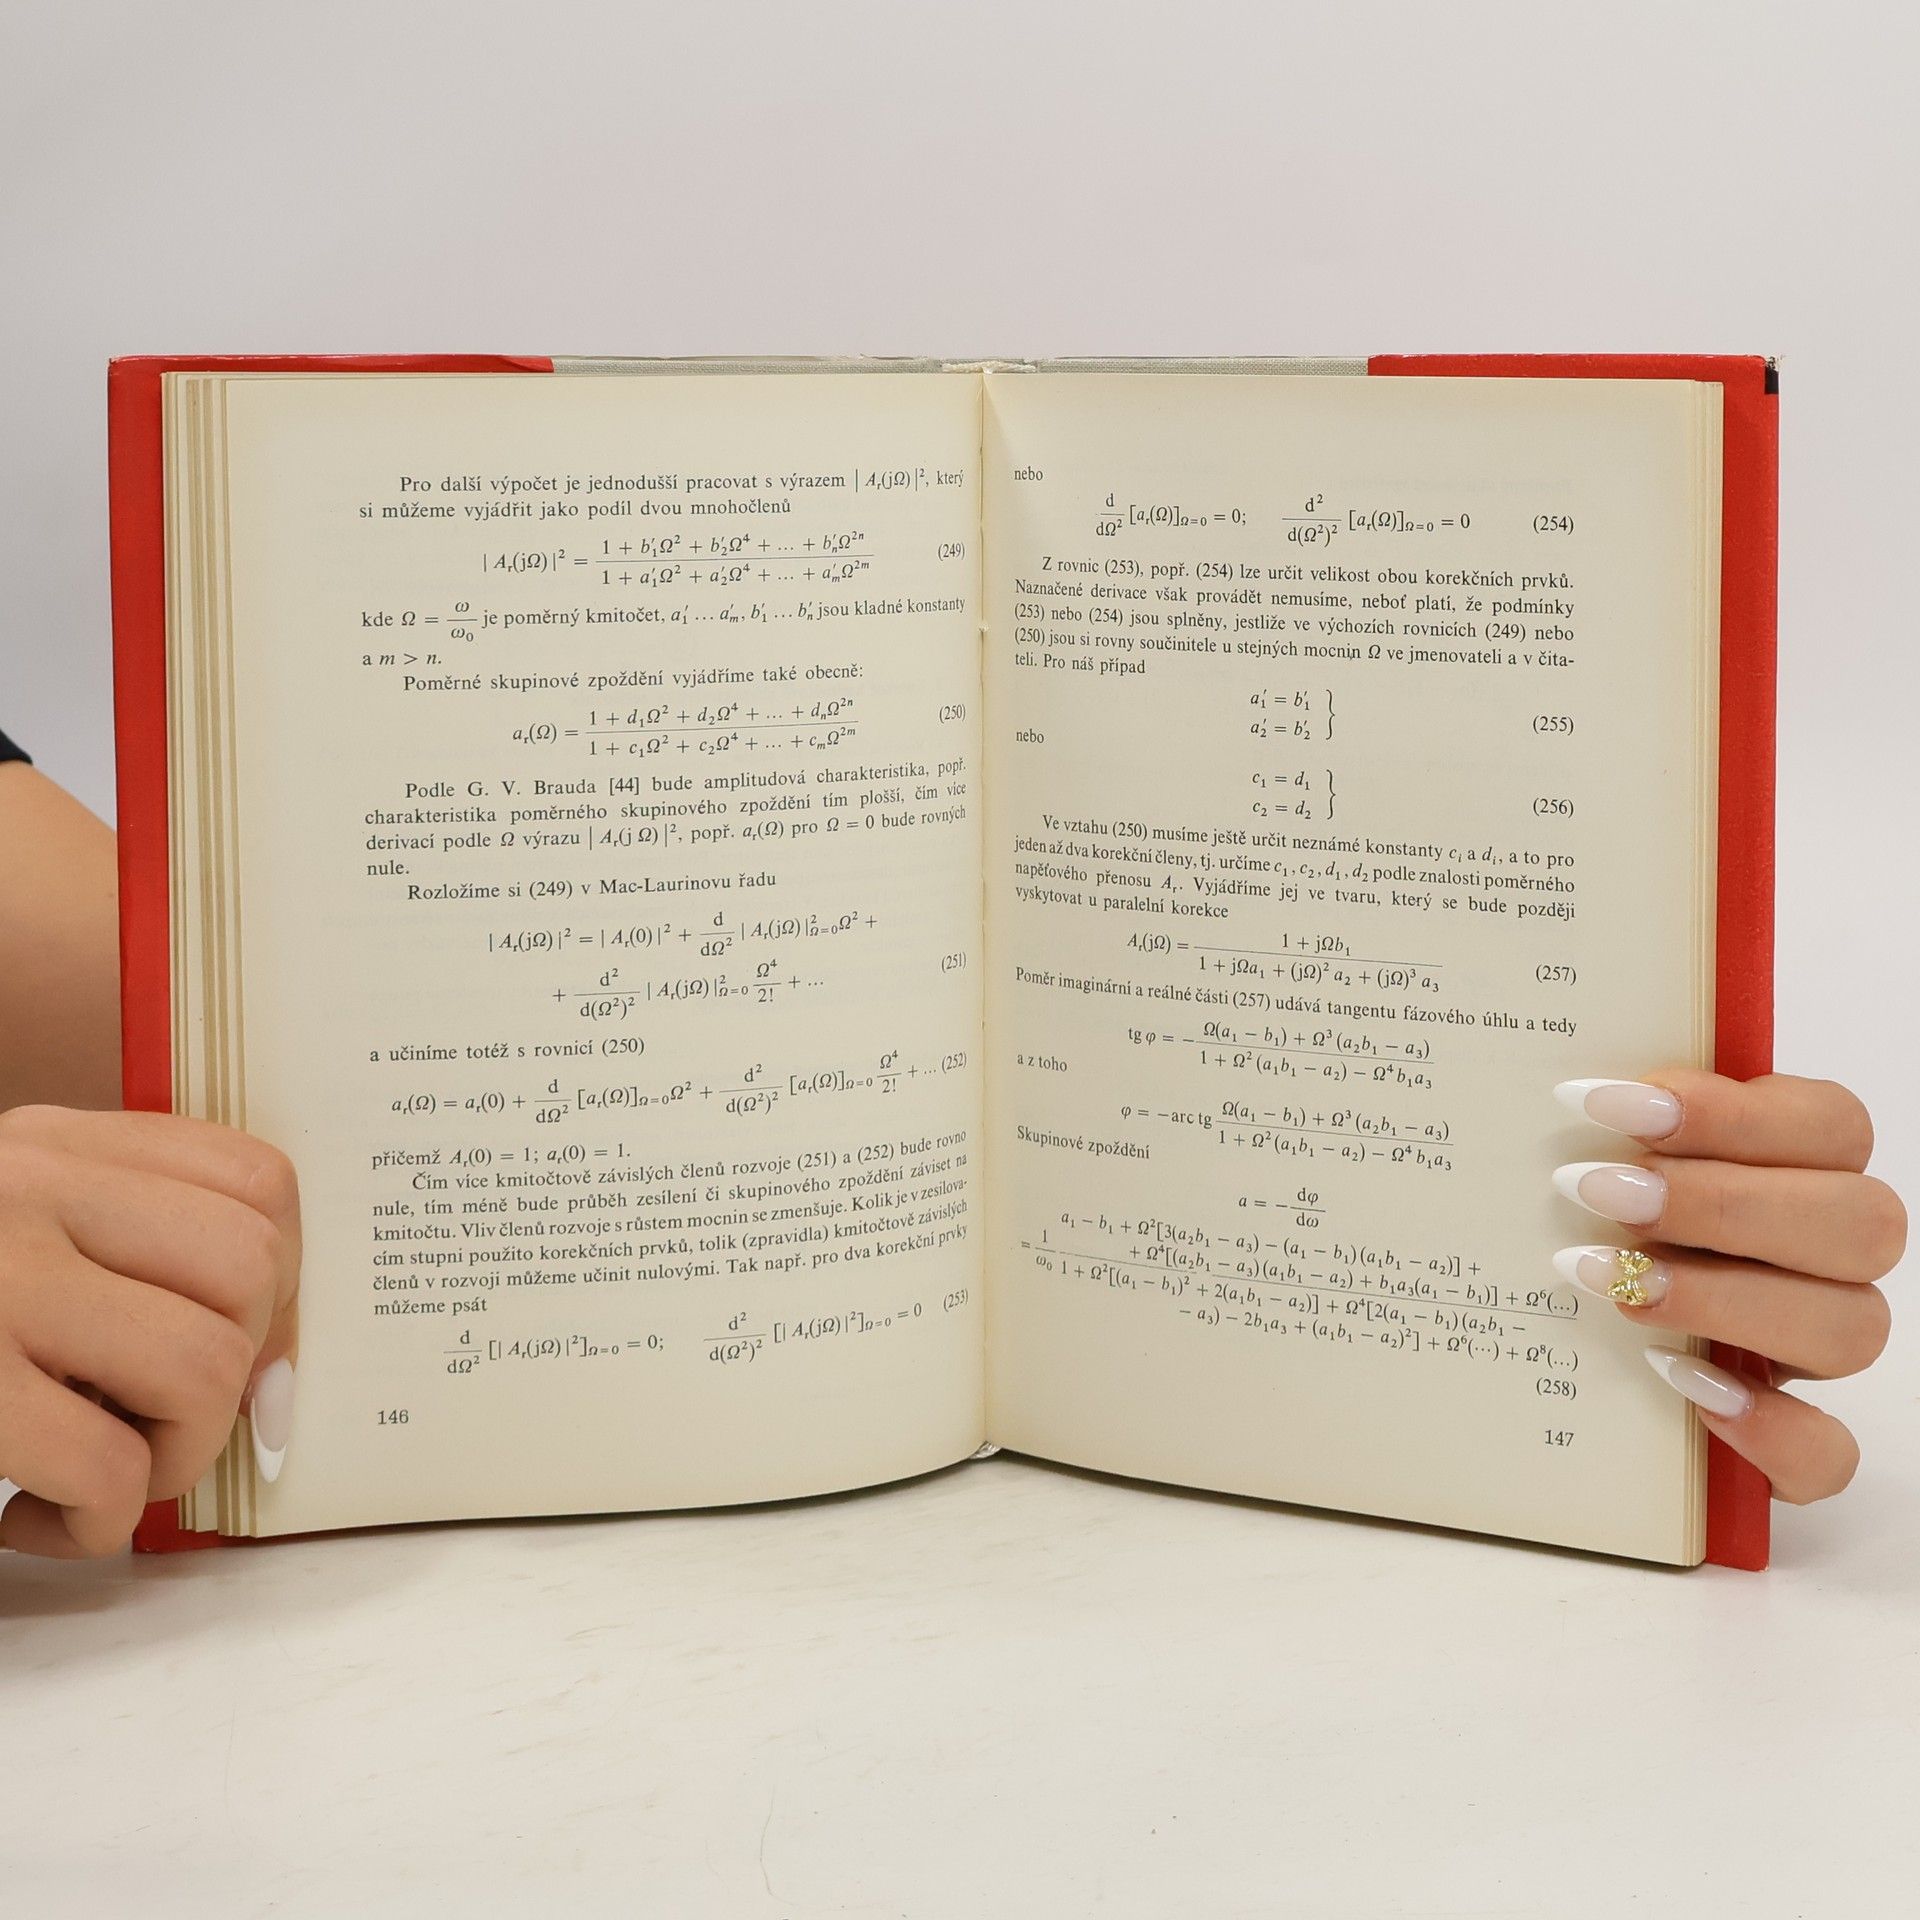 Pro další výpočet je jednodušší pracovat s výrazem | Aᵣ(jΩ) |², který
si můžeme vyjádřit jako podíl dvou mnohočlenů
| Aᵣ(jΩ) |² = (1 + b′₁Ω² + b′₂Ω⁴ + ... + b′ₙΩ²ⁿ) / (1 + a′₁Ω² + a′₂Ω⁴ + ... + a′ₘΩ²ᵐ) (249)
kde Ω = ω/ω₀ je poměrný kmitočet, a′₁ ... a′ₘ, b′₁ ... b′ₙ jsou kladné konstanty
a m > n.
Poměrné skupinové zpoždění vyjádříme také obecně:
aᵣ(Ω) = (1 + d₁Ω² + d₂Ω⁴ + ... + dₙΩ²ⁿ) / (1 + c₁Ω² + c₂Ω⁴ + ... + cₘΩ²ᵐ) (250)
Podle G. V. Brauda [44] bude amplitudová charakteristika, popř.
charakteristika poměrného skupinového zpoždění tím plošší, čím více
derivací podle Ω výrazu | Aᵣ(j Ω) |², popř. aᵣ(Ω) pro Ω = 0 bude rovných
nule.
Rozložíme si (249) v Mac-Laurinovu řadu
| Aᵣ(jΩ) |² = | Aᵣ(0) |² + d/dΩ² | Aᵣ(jΩ) |²_Ω=0 Ω² +
+ d²/d(Ω²)² | Aᵣ(jΩ) |²_Ω=0 Ω⁴/2! + ... (251)
a učiníme totéž s rovnicí (250)
aᵣ(Ω) = aᵣ(0) + d/dΩ² [aᵣ(Ω)]_Ω=0 Ω² + d²/d(Ω²)² [aᵣ(Ω)]_Ω=0 Ω⁴/2! + ... (252)
přičemž Aᵣ(0) = 1; aᵣ(0) = 1.
Čím více kmitočtově závislých členů rozvoje (251) a (252) bude rovno
nule, tím méně bude průběh zesílení či skupinového zpoždění záviset na
kmitočtu. Vliv členů rozvoje s růstem mocnin se zmenšuje. Kolik je v zesilova-
cím stupni použito korekčních prvků, tolik (zpravidla) kmitočtově závislých
členů v rozvoji můžeme učinit nulovými. Tak např. pro dva korekční prvky
můžeme psát
d/dΩ² [| Aᵣ(jΩ) |²]_Ω=0 = 0; d²/d(Ω²)² [| Aᵣ(jΩ) |²]_Ω=0 = 0 (253)
146
nebo
d/dΩ² [aᵣ(Ω)]_Ω=0 = 0; d²/d(Ω²)² [aᵣ(Ω)]_Ω=0 = 0 (254)
Z rovnic (253), popř. (254) lze určit velikost obou korekčních prvků.
Naznačené derivace však provádět nemusíme, neboť platí, že podmínky
(253) nebo (254) jsou splněny, jestliže ve výchozích rovnicích (249) nebo
(250) jsou si rovny součinitele u stejných mocnin Ω ve jmenovateli a v čita-
teli. Pro náš případ
a′₁ = b′₁
a′₂ = b′₂ (255)
nebo
c₁ = d₁
c₂ = d₂ (256)
Ve vztahu (250) musíme ještě určit neznámé konstanty cᵢ a dᵢ, a to pro
jeden až dva korekční členy, tj. určíme c₁, c₂, d₁, d₂ podle znalosti poměrného
napěťového přenosu Aᵣ. Vyjádříme jej ve tvaru, který se bude později
vyskytovat u paralelní korekce
Aᵣ(jΩ) = (1 + jΩb₁) / (1 + jΩa₁ + (jΩ)² a₂ + (jΩ)³ a₃) (257)
Poměr imaginární a reálné části (257) udává tangentu fázového úhlu a tedy
tg φ = − (Ω(a₁ − b₁) + Ω³ (a₂b₁ − a₃)) / (1 + Ω² (a₁b₁ − a₂) − Ω⁴ b₁a₃)
a z toho
φ = −arc tg (Ω(a₁ − b₁) + Ω³ (a₂b₁ − a₃)) / (1 + Ω² (a₁b₁ − a₂) − Ω⁴ b₁a₃)
Skupinové zpoždění
a = − dφ/dω
a₁ − b₁ + Ω²[3(a₂b₁ − a₃) − (a₁ − b₁) (a₁b₁ − a₂)] +
= 1/ω₀ + Ω⁴[(a₂b₁ − a₃) (a₁b₁ − a₂) + b₁a₃(a₁ − b₁)] + Ω⁶(...)
1 + Ω²[(a₁ − b₁)² + 2(a₁b₁ − a₂)] + Ω⁴[2(a₁ − b₁) (a₂b₁ −
− a₃) − 2b₁a₃ + (a₁b₁ − a₂)²] + Ω⁶(...) + Ω⁸(...)
(258)
147